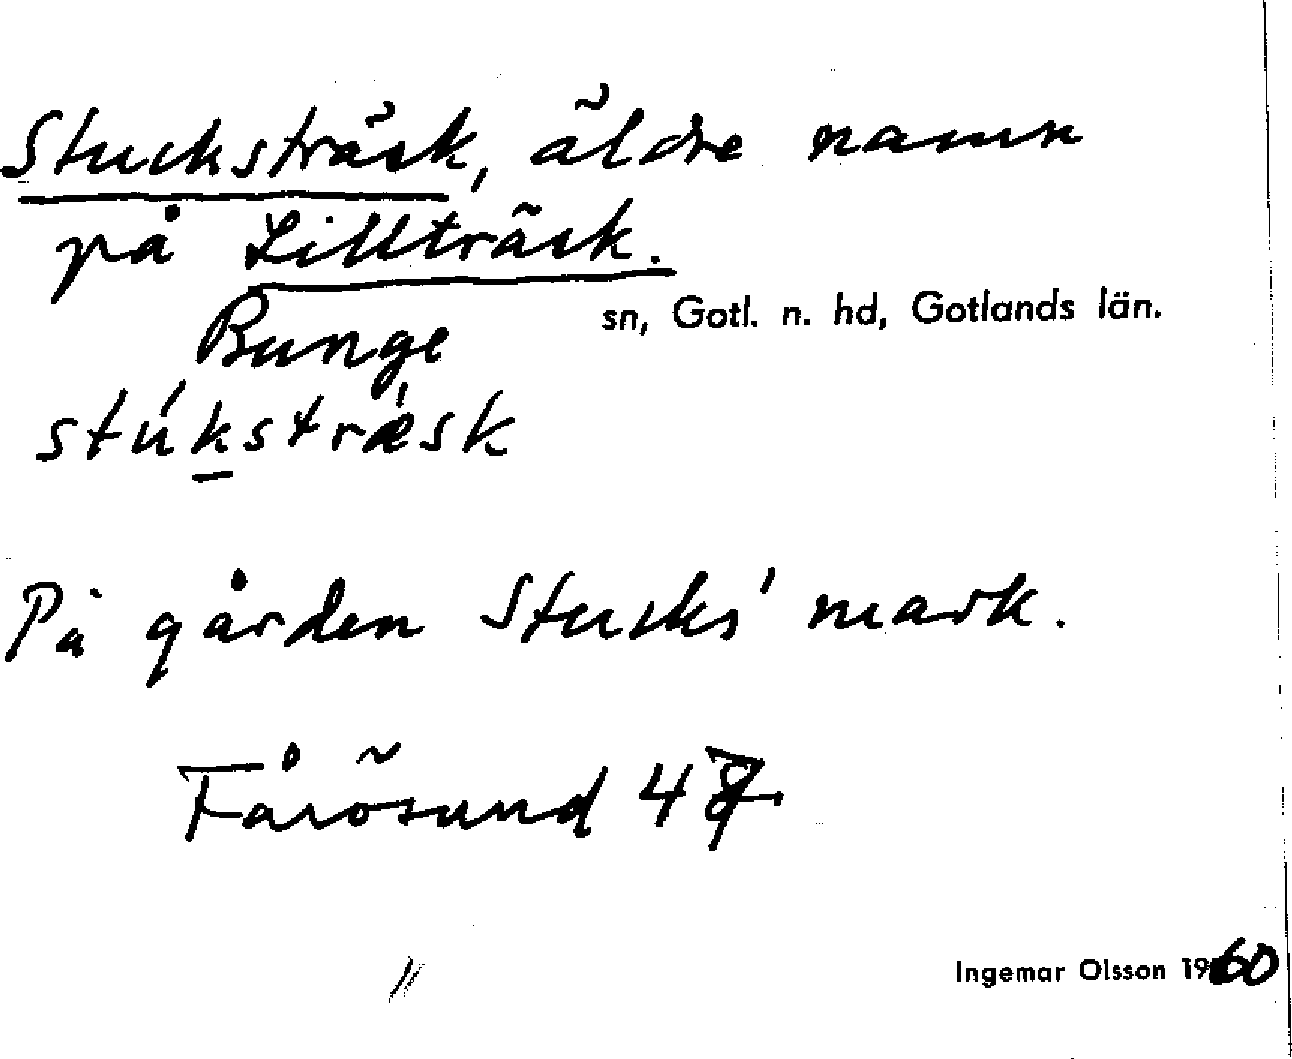 Stucksträsk, äldre namn
på Lillträsk.
Bunge sn, Gotl. n. hd, Gotlands län.
stúkstrǽsk
På gården Stucks' mark.
Fårösund 47
Ingemar Olsson 1960